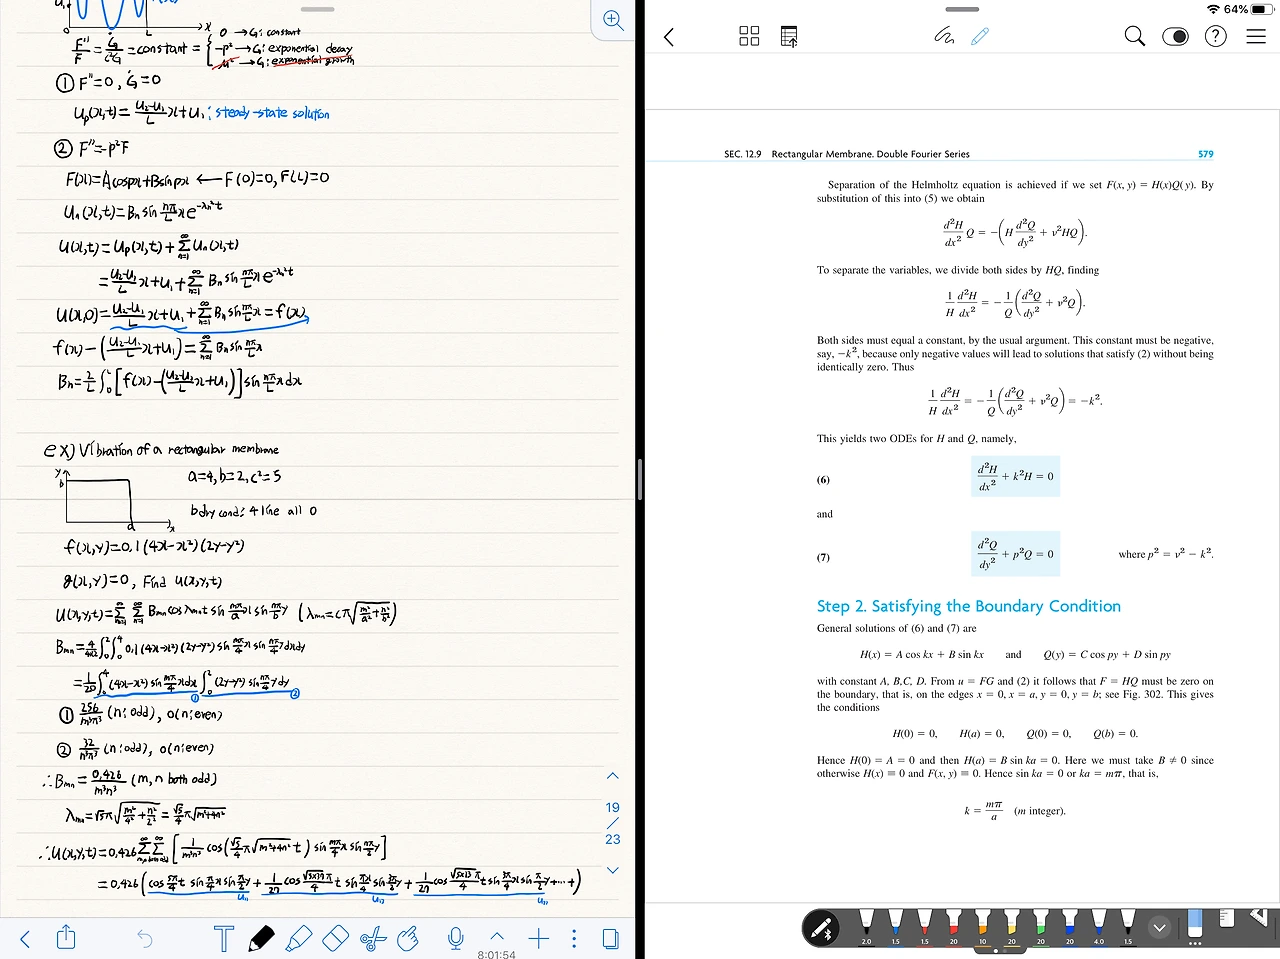 F''/F = Ġ/c²G = constant = { 0 → G: constant
-p² → G: exponential decay
μ² → G: exponential growth
① F''=0, Ġ=0
u_p(x,t) = (u₂-u₁)/L x+u₁ : steady-state solution
② F''=-p²F
F(x)=Acospx+Bsinpx ← F(0)=0, F(L)=0
u_n(x,t)=B_n sin nπ/L x e^(-λ_n²t)
u(x,t)=u_p(x,t)+∑_(n=1)^∞ u_n(x,t)
= (u₂-u₁)/L x+u₁+∑_(n=1)^∞ B_n sin nπ/L x e^(-λ_n²t)
u(x,0)= (u₂-u₁)/L x+u₁+∑_(n=1)^∞ B_n sin nπ/L x = f(x)
f(x)-((u₂-u₁)/L x+u₁)=∑_(n=1)^∞ B_n sin nπ/L x
B_n=2/L ∫₀^L [f(x)-((u₂-u₁)/L x+u₁)] sin nπ/L x dx
ex) Vibration of a rectangular membrane
y
b
a
x
a=4, b=2, c²=5
bdry cond: 4 line all 0
f(x,y)=0.1(4x-x²)(2y-y²)
g(x,y)=0, Find u(x,y,t)
u(x,y,t)=∑_(m=1)^∞ ∑_(n=1)^∞ B_mn cos λ_mn t sin mπ/a x sin nπ/b y (λ_mn=cπ√(m²/a²+n²/b²))
B_mn=4/(4×2) ∫₀² ∫₀⁴ 0.1(4x-x²)(2y-y²) sin mπ/4 x sin nπ/2 y dxdy
=1/20 ∫₀⁴ (4x-x²) sin mπ/4 x dx ① ∫₀² (2y-y²) sin nπ/2 y dy ②
① 256/m³π³ (n: odd), 0(n:even)
② 32/n³π³ (n: odd), 0(n:even)
∴B_mn=0.426/m³n³ (m, n both odd)
λ_mn=√5π√(m²/4²+n²/2²)=√5/4 π√(m²+4n²)
∴u(x,y,t)=0.426∑^∞∑^∞ [1/m³n³ cos(√5/4 π√(m²+4n²) t) sin mπ/4 x sin nπ/2 y]
=0.426(cos 5π/4 t sin π/4 x sin π/2 y + 1/27 cos
19
/
23
8:01:54
64%
SEC. 12.9 Rectangular Membrane. Double Fourier Series 579
Separation of the Helmholtz equation is achieved if we set F(x, y) = H(x)Q(y). By
substitution of this into (5) we obtain
d²H/dx² Q = −(H d²Q/dy² + ν²HQ).
To separate the variables, we divide both sides by HQ, finding
1/H d²H/dx² = −1/Q (d²Q/dy² + ν²Q).
Both sides must equal a constant, by the usual argument. This constant must be negative,
say, −k², because only negative values will lead to solutions that satisfy (2) without being
identically zero. Thus
1/H d²H/dx² = −1/Q (d²Q/dy² + ν²Q) = −k².
This yields two ODEs for H and Q, namely,
(6) d²H/dx² + k²H = 0
and
(7) d²Q/dy² + p²Q = 0 where p² = ν² − k².
Step 2. Satisfying the Boundary Condition
General solutions of (6) and (7) are
H(x) = A cos kx + B sin kx and Q(y) = C cos py + D sin py
with constant A, B,C, D. From u = FG and (2) it follows that F = HQ must be zero on
the boundary, that is, on the edges x = 0, x = a, y = 0, y = b; see Fig. 302. This gives
the conditions
H(0) = 0, H(a) = 0, Q(0) = 0, Q(b) = 0.
Hence H(0) = A = 0 and then H(a) = B sin ka = 0. Here we must take B ≠ 0 since
otherwise H(x) ≡ 0 and F(x, y) ≡ 0. Hence sin ka = 0 or ka = mπ, that is,
k = mπ/a (m integer).
2.0 1.5 1.5 20 10 20 20 20 4.0 1.5